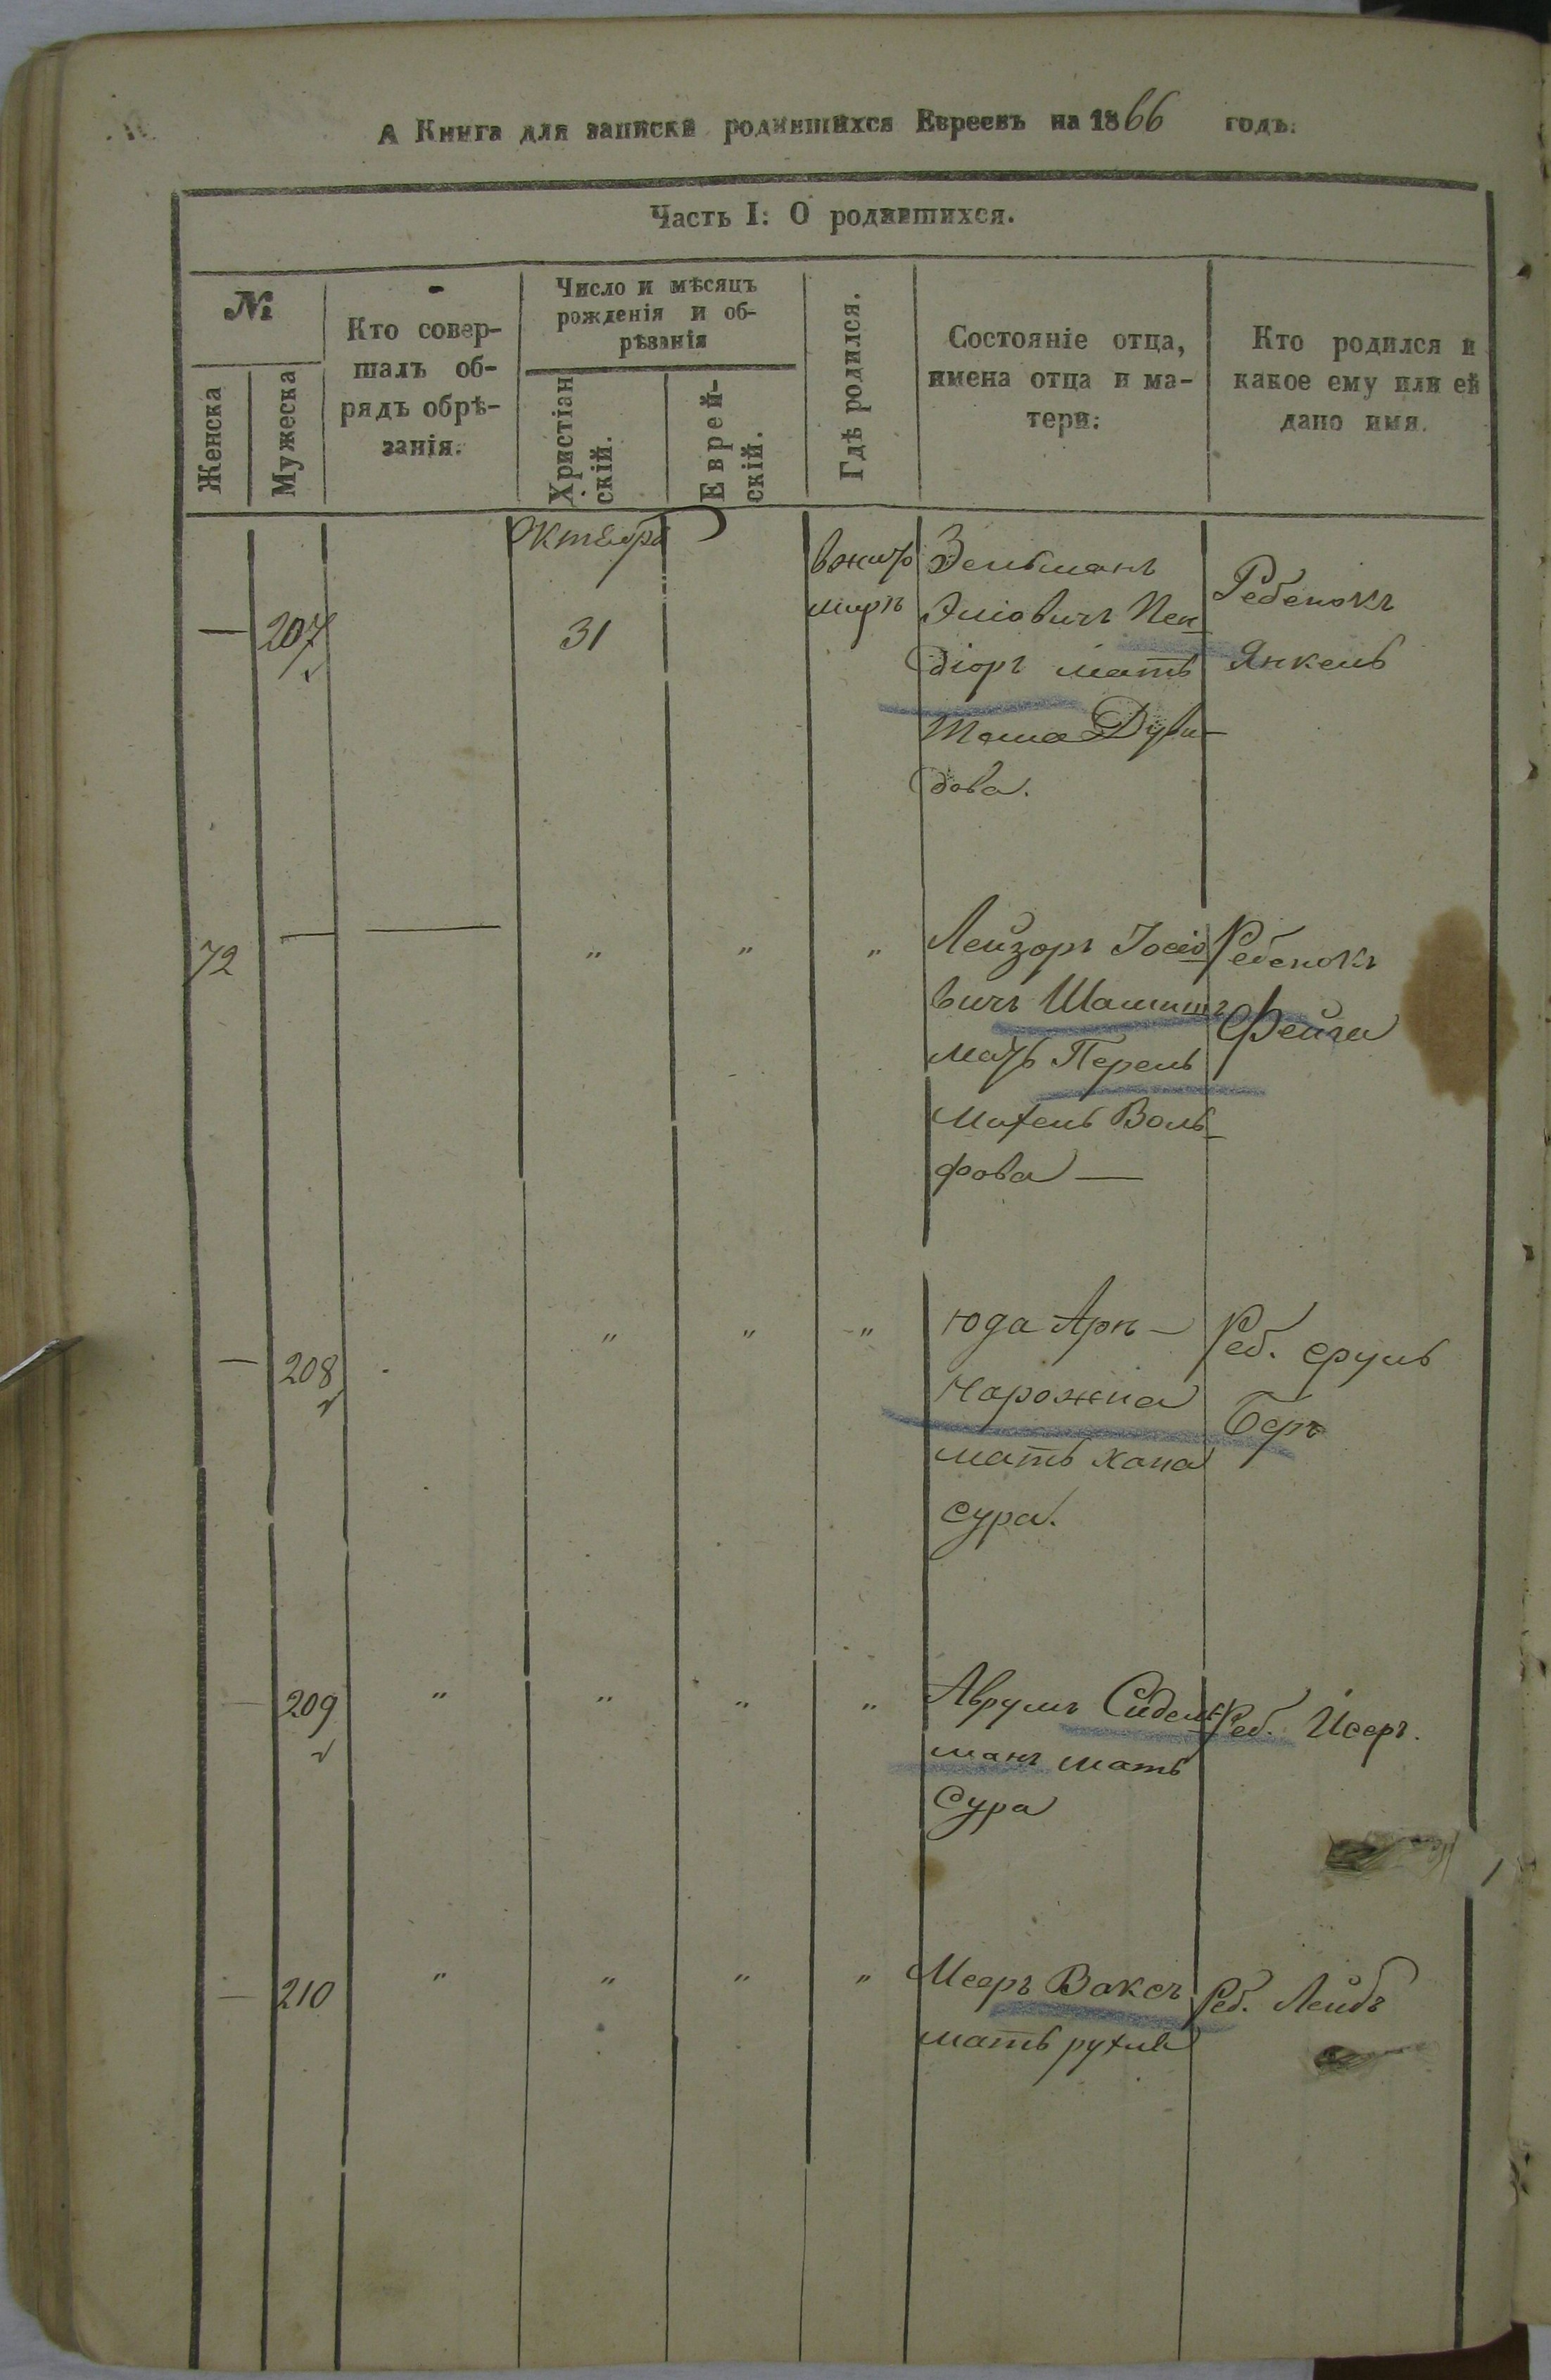 А Книга для записки родившихся Евреевъ на 1866 годъ.
Часть I: О родившихся.
№
Женска
Мужеска
Кто совер-
шалъ об-
рядъ обрѣ-
занія.
Число и мѣсяцъ
рожденія и об-
рѣзанія
Христіан
скій.
Еврей-
скій.
Гдѣ родился.
Состояніе отца,
имена отца и ма-
тери.
Кто родился и
какое ему или ей
дано имя.
—
207
Октября
31
вжит
мирѣ
Зельманъ
Эліовичъ Пен
діоръ мать
Дуви-
дова.
Ребенокъ
Янкель
72
—
—
"
"
"
Лейзоръ Іосіо
вичъ
мать Перель
Махель Воль
фова —
Ребенокъ
Фейга
—
208
"
"
"
Юда Арн-
Нарожна
мать хана
сура.
Реб. сруль
Беръ
—
209
"
"
"
"
Аврумъ Сидель
манъ мать
Сура
Реб. Исеръ.
—
210
"
"
"
"
Мееръ Ваксъ
мать рухля
Реб. Лейбъ